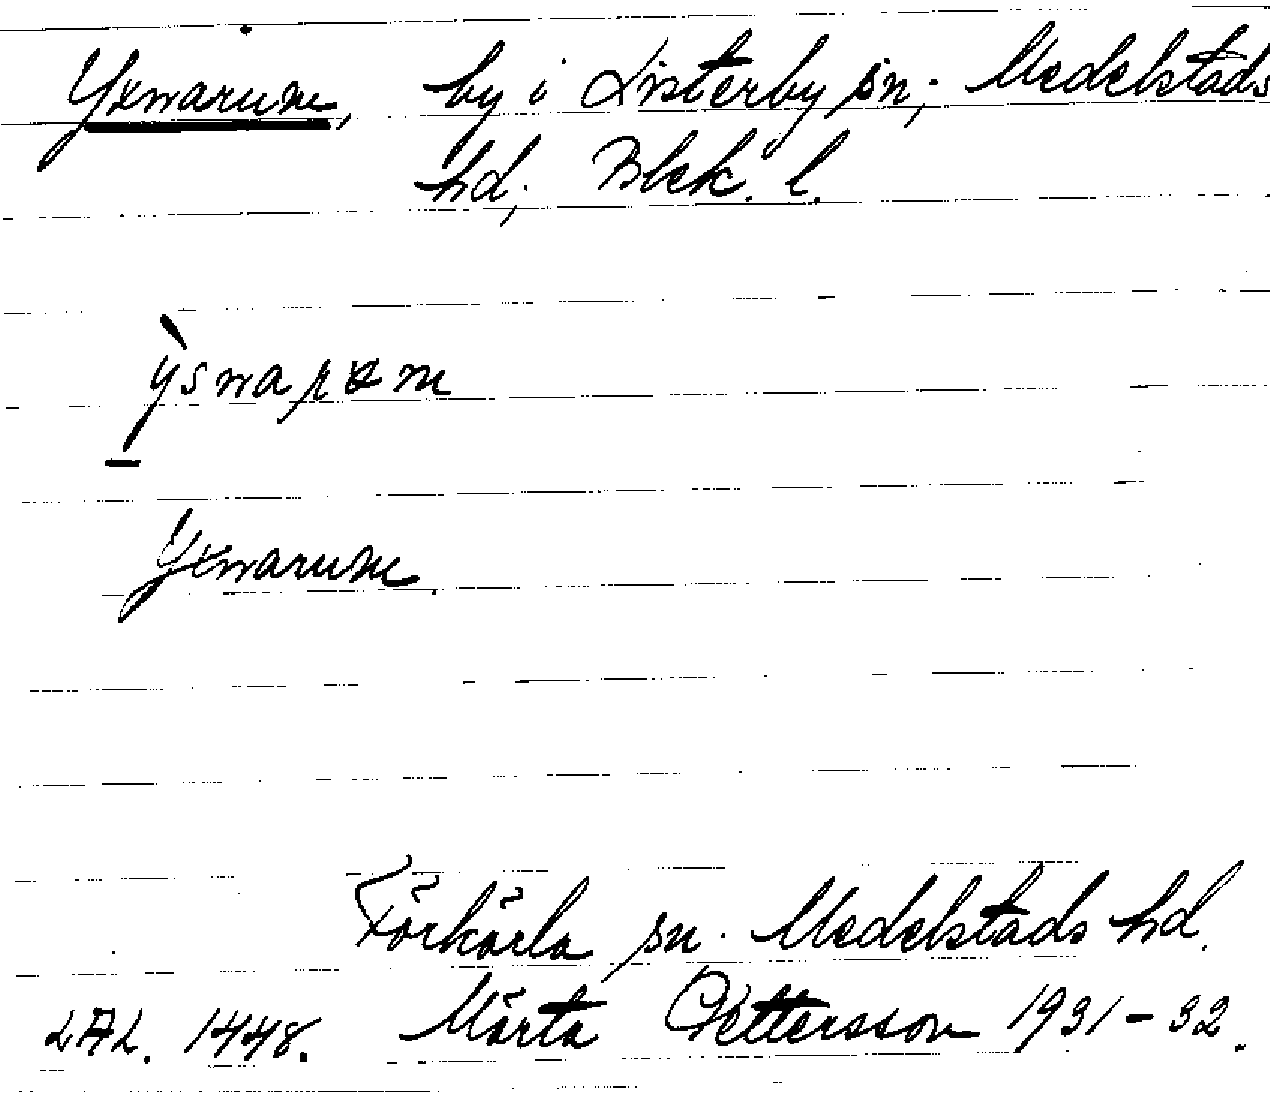 Yxnarum, by i Listerby sn, Medelstads
hd, Blek. l.
ỳsnarɵm
Yxnarum.
Förkärla sn. Medelstads hd.
LAL. 1448. Märta Pettersson 1931-32.